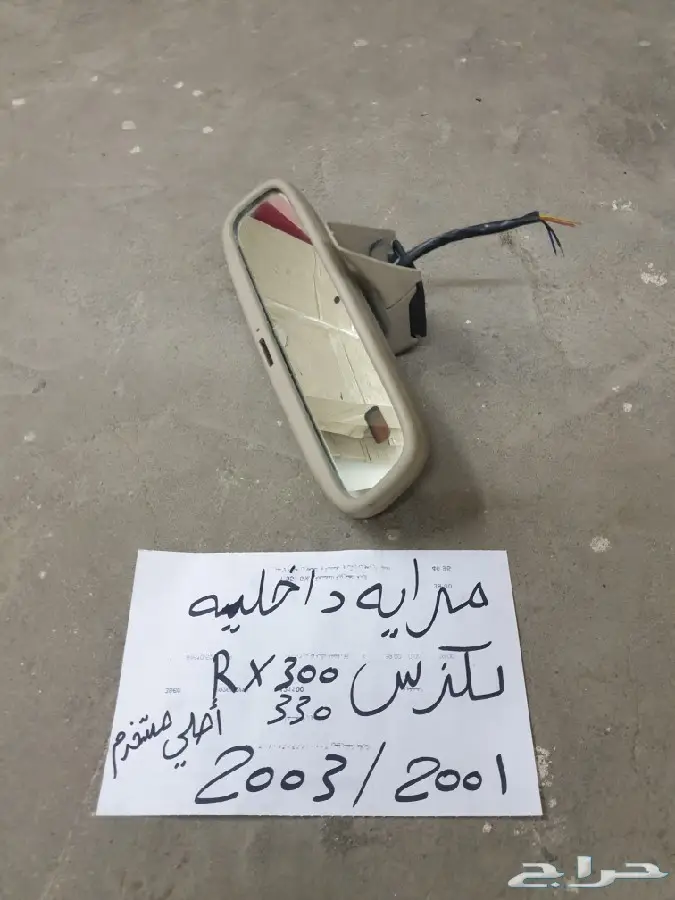 مرايه داخليه
لكزس RX300
330
أصلي مستخدم
2003/2001
حراج